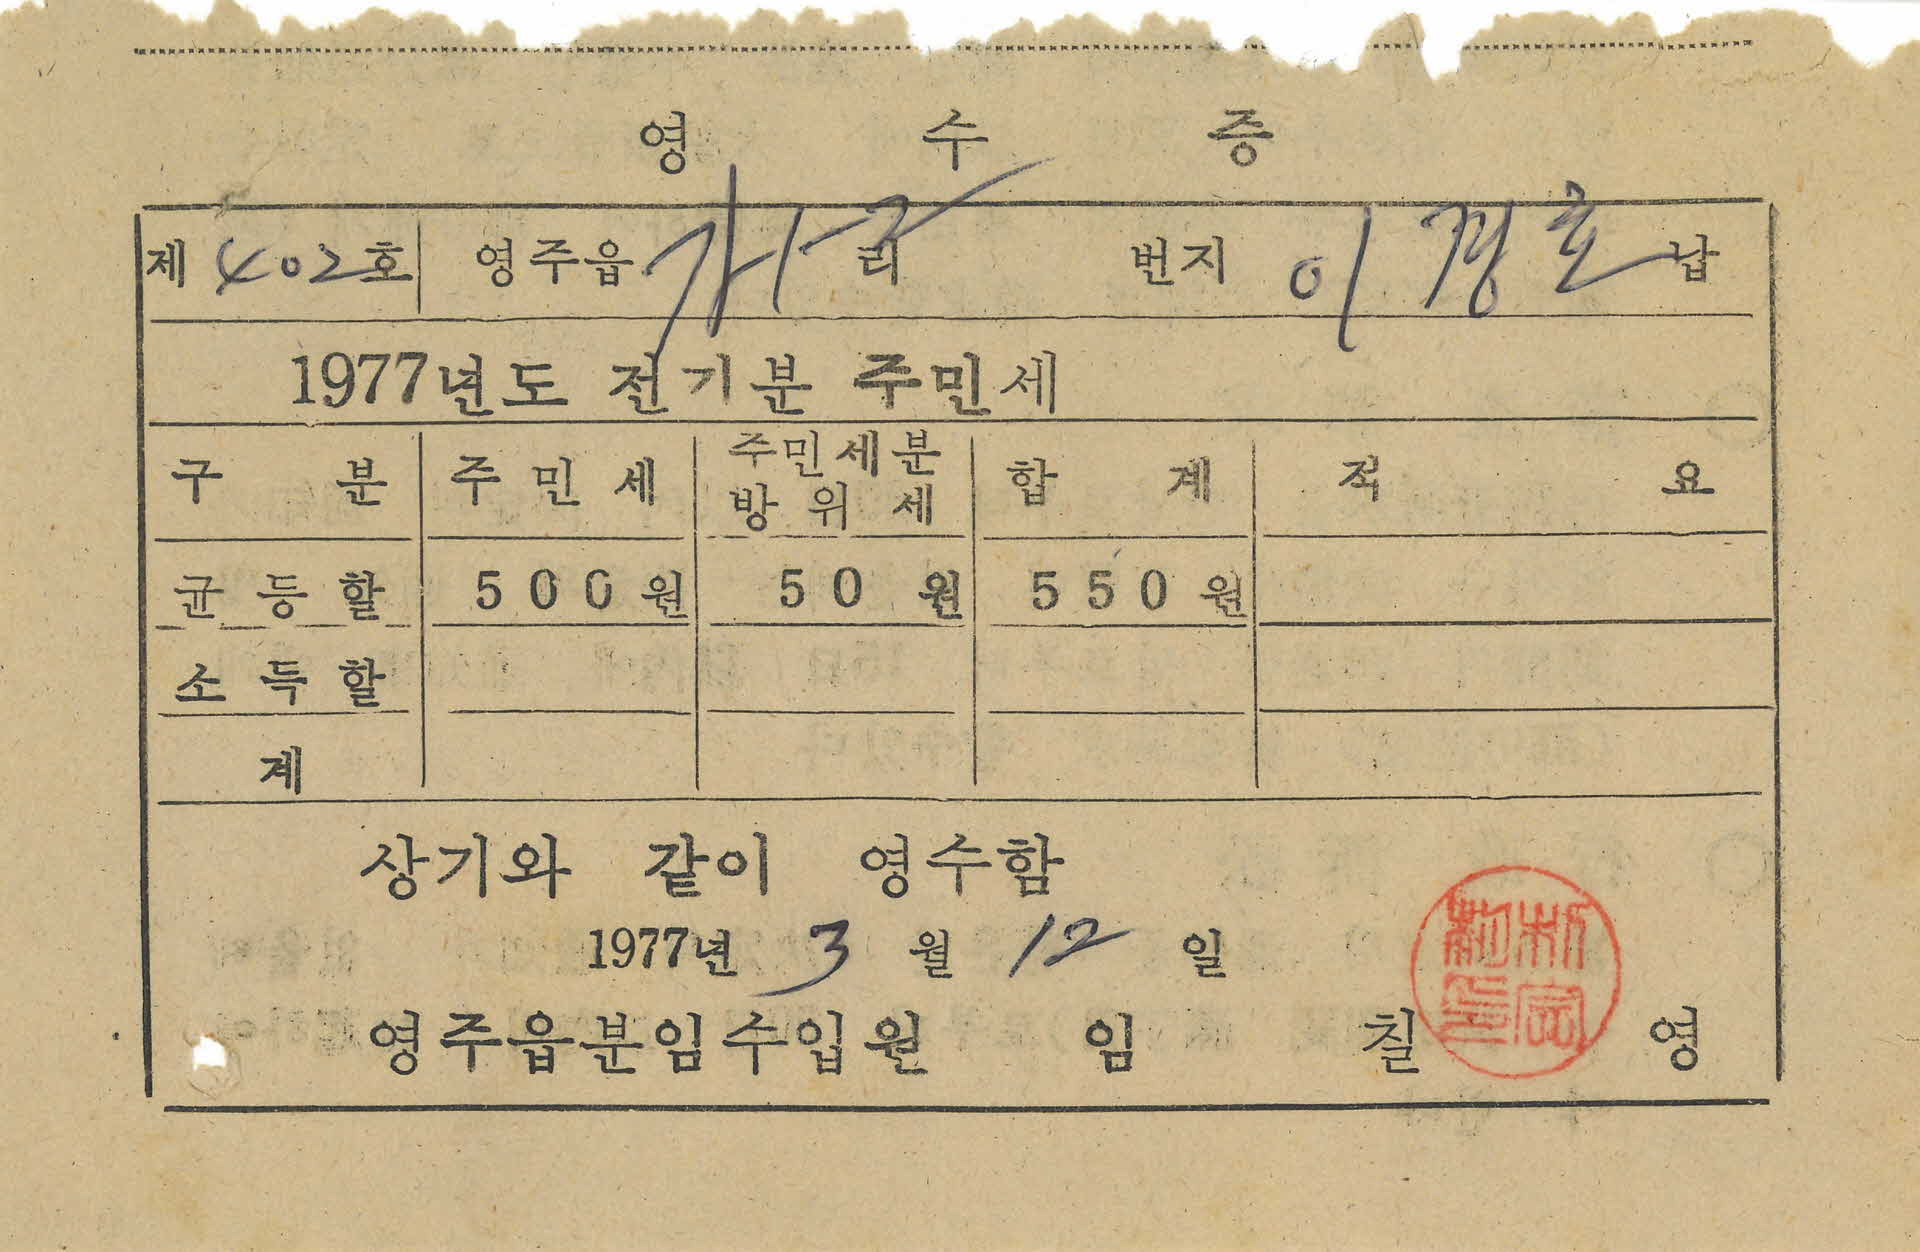 영 수 증
제 402 호 영주읍 가 2 리 번지 이경호 납
1977년도 전기분 주민세
구 분 주 민 세 주민세분 방 위 세 합 계 적 요
균 등 할 500원 50원 550원
소 득 할
계
상기와 같이 영수함
1977년 3월 12일
영주읍분임수입원 임 칠 영